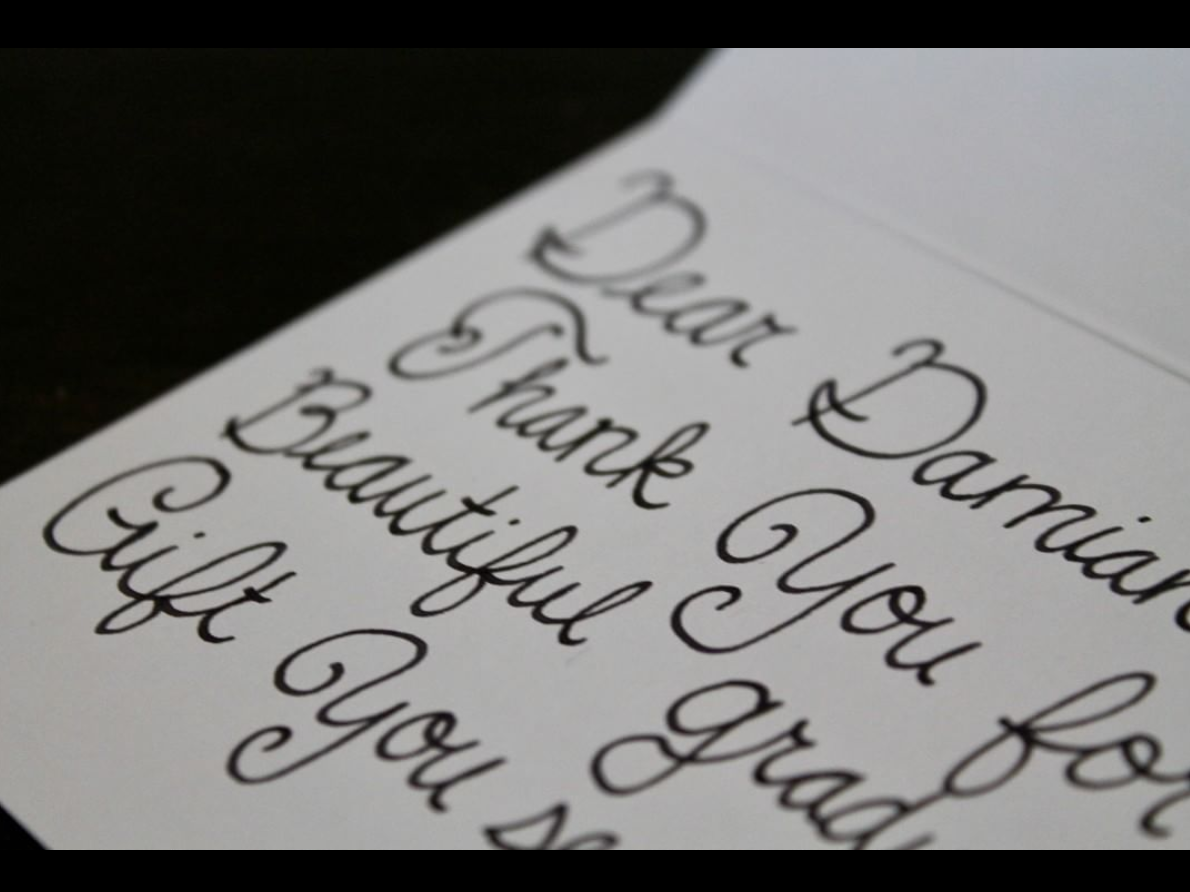 Dear Damian
Thank You for
Beautiful grad
Gift You se